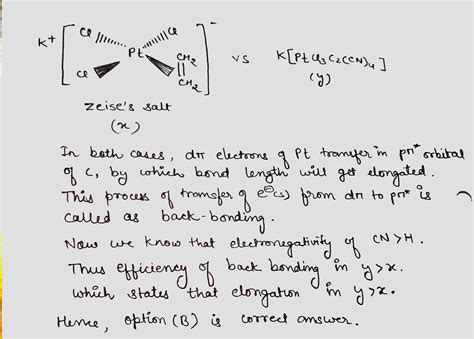 K+ [Cl Cl Cl Pt CH2 CH2]- vs K[PtCl3C2(CN)4]
(y)
Zeise's salt
(x)
In both cases, dπ electrons of Pt transfer in pπ* orbital
of C, by which bond length will get elongated.
This process of transfer of e⊖(s) from dπ to pπ* is
called as back-bonding.
Now we know that electronegativity of CN>H.
Thus efficiency of back bonding in y>x.
which states that elongation in y>x.
Hence, option (B) is correct answer.